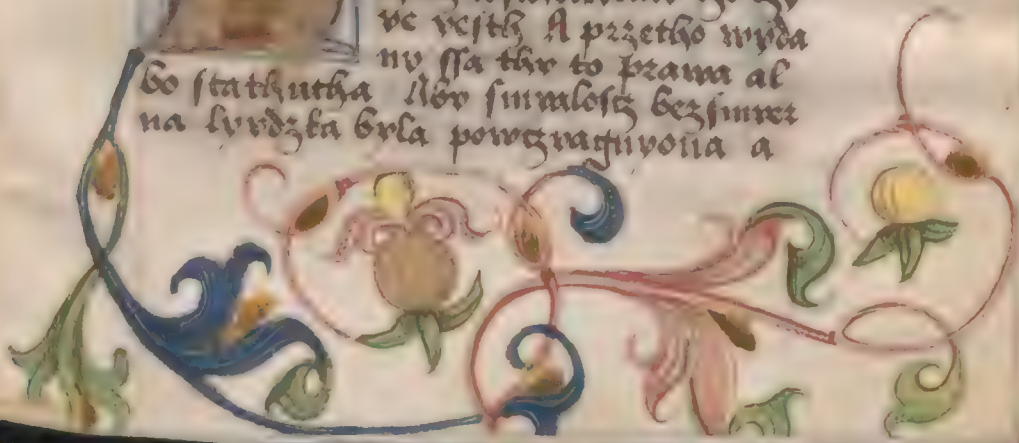 ye yesth A przetho wyda
ny ssa thy to prawa al
bo stathutha Aby smyaloscz bezsmyer
na lyvdzka byla powczyagnyona a